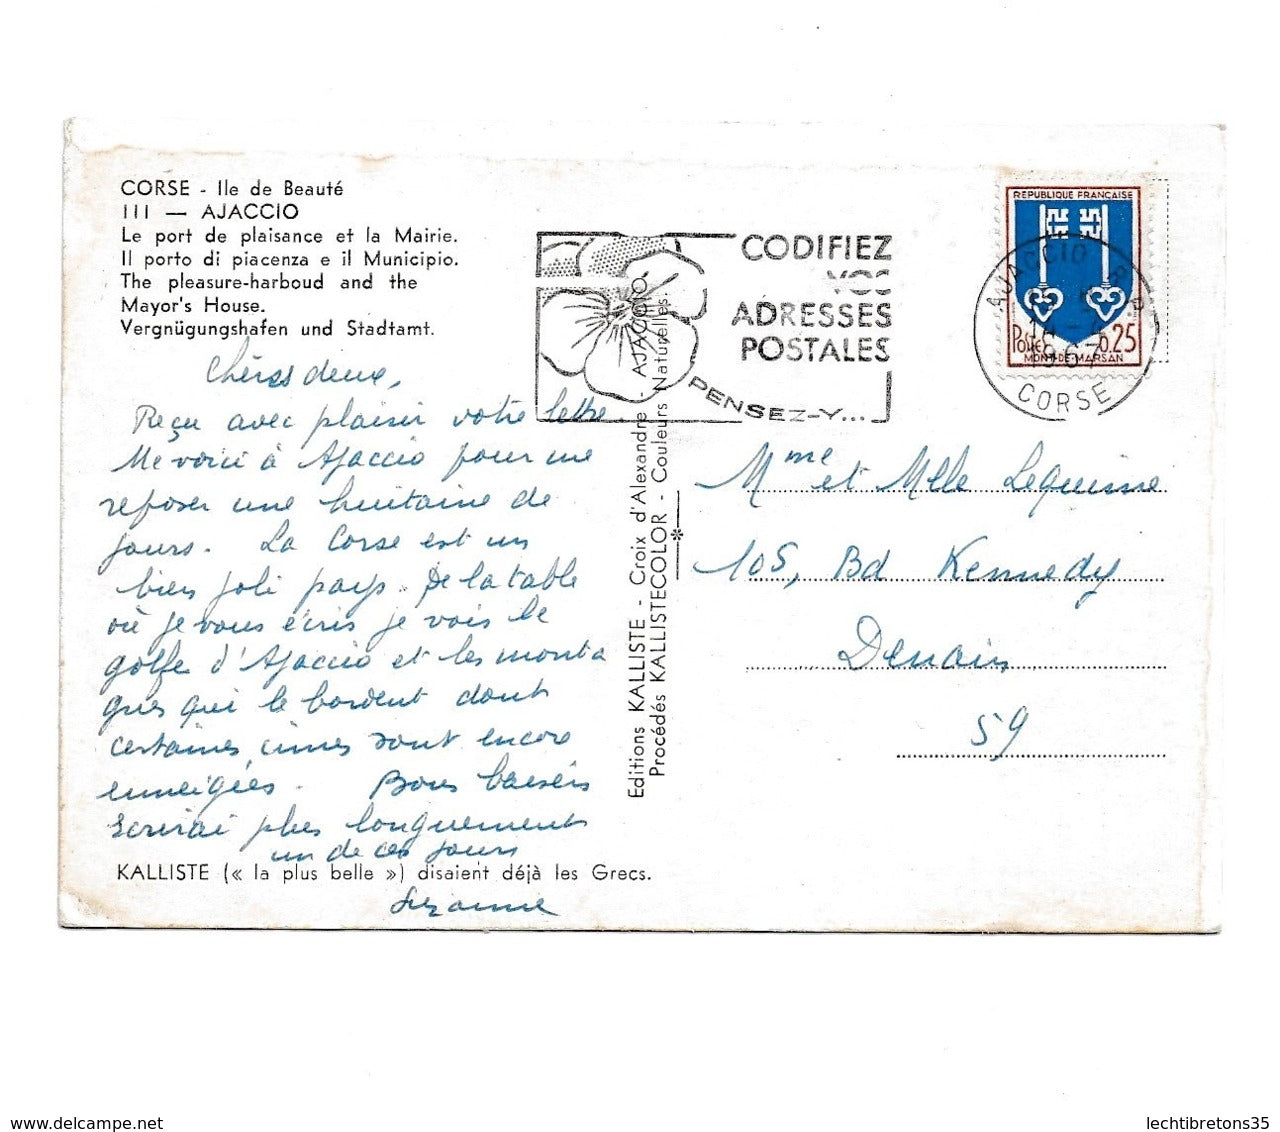 CORSE - Ile de Beauté
III — AJACCIO
Le port de plaisance et la Mairie.
Il porto di piacenza e il Municipio.
The pleasure-harboud and the
Mayor's House.
Vergnügungshafen und Stadtamt.
Chères deux,
Reçu avec plaisir votre lettre.
Me voici à Ajaccio pour me
reposer une huitaine de
jours. La Corse est un
bien joli pays. De la table
où je vous écris je vois le
golfe d'Ajaccio et les monta
gnes qui le bordent dont
certaines cimes sont encore
enneigées. Bons baisers
Ecrirai plus longuement
un de ces jours
KALLISTE (« la plus belle ») disaient déjà les Grecs.
Suzanne
Editions KALLISTE - Croix d'Alexandre - AJACCIO.
Procédés KALLISTECOLOR - Couleurs Naturelles.
CODIFIEZ
VOS
ADRESSES
POSTALES
PENSEZ-Y...
REPUBLIQUE FRANÇAISE
Postes 0,25
MONT-DE-MARSAN
AJACCIO R.P.
1967
CORSE
Mme et Mlle Lequime
105, Bd Kennedy
Denain
59
www.delcampe.net
lechtibretons35